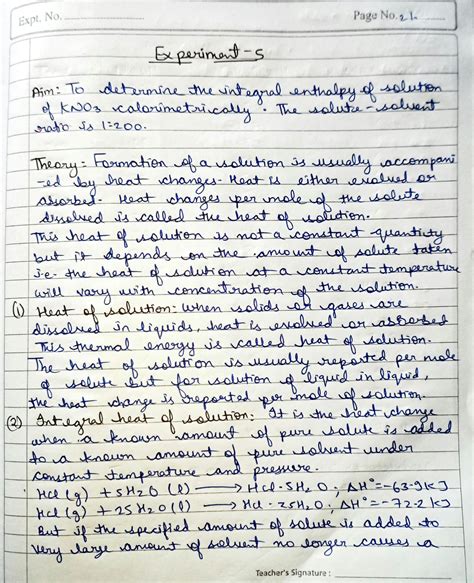 Expt. No.
Page No. 21
Experiment-5
Aim: To determine the integral enthalpy of solution
of KNO3 calorimetrically. The solute-solvent
ratio is 1:200.
Theory: Formation of a solution is usually accompani
-ed by heat changes. Heat is either evolved or
absorbed. Heat changes per mole of the solute
dissolved is called the heat of solution.
This heat of solution is not a constant quantity
but it depends on the amount of solute taken
i.e. the heat of solution at a constant temperature
will vary with concentration of the solution.
(1) Heat of solution: When solids or gases are
dissolved in liquids, heat is evolved or absorbed
This thermal energy is called heat of solution.
The heat of solution is usually reported per mole
of solute but for solution of liquid in liquid,
the heat change is reported per mole of solution.
(2) Integral heat of solution: It is the heat change
when a known amount of pure solute is added
to a known amount of pure solvent under
constant temperature and pressure.
Hcl (g) + 5H2O (l) ⟶ Hcl·5H2O; ΔH°=-63.9kJ
Hcl (g) + 25H2O (l) ⟶ Hcl·25H2O; ΔH°=-72.2kJ
But if the specified amount of solute is added to
very large amount of solvent no longer causes a
Teacher's Signature: